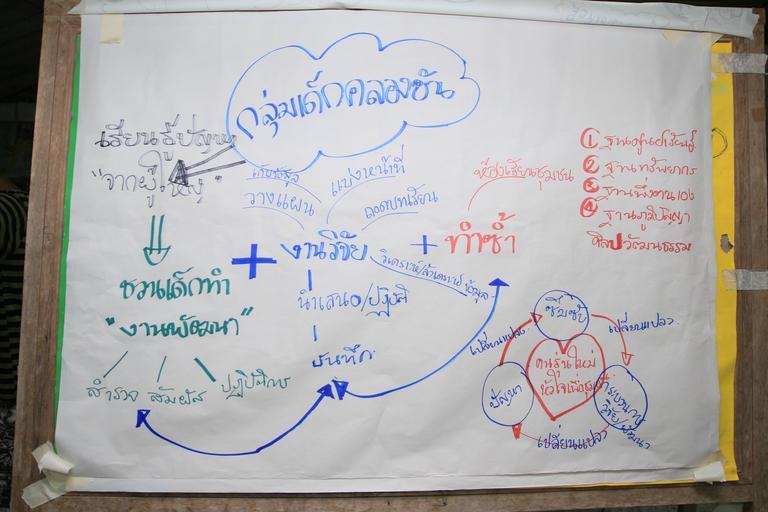 กลุ่มเด็กคลองซัน
เรียนรู้ปัญหา
"จากผู้ใหญ่"
วางแผน
แบ่งหน้าที่
ถอดบทเรียน
ห้องเรียนชุมชน
① ฐาน
② ฐานทรัพยากร
③ ฐานพึ่งตนเอง
④ ฐานภูมิปัญญา
ศิลปวัฒนธรรม
ชวนเด็กทำ
"งานพัฒนา"
สำรวจ
สัมผัส
+ งานวิจัย + ทำซ้ำ
วิเคราะห์/สังเคราะห์ ข้อมูล
นำเสนอ/
บันทึก
ซึมซับ
เปลี่ยนแปลง
เปลี่ยนแปลง
คนรุ่นใหม่
หัวใจเพื่อชุมชน
ปัญหา
กระบวนการ
วิจัย/พัฒนา
เปลี่ยนแปลง